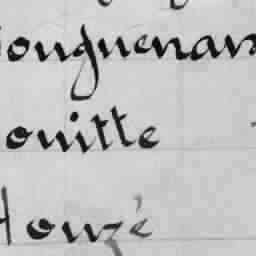 ouguenan
ouitte
Houzé